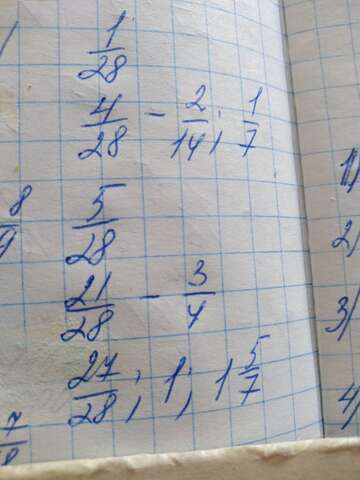 1/28
4/28 - 2/14; 1/7
5/28
21/28 - 3/4
27/28; 1; 1 5/7
8
1)
2)
3)
4)
7